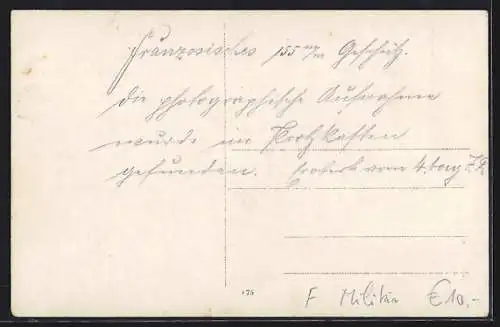 Französisches 155 m/m Geschütz.
Die photographische Aufnahme
wurde im Protzkasten
gefunden. erobert vom 4. bay.
475
F Militär €10,-